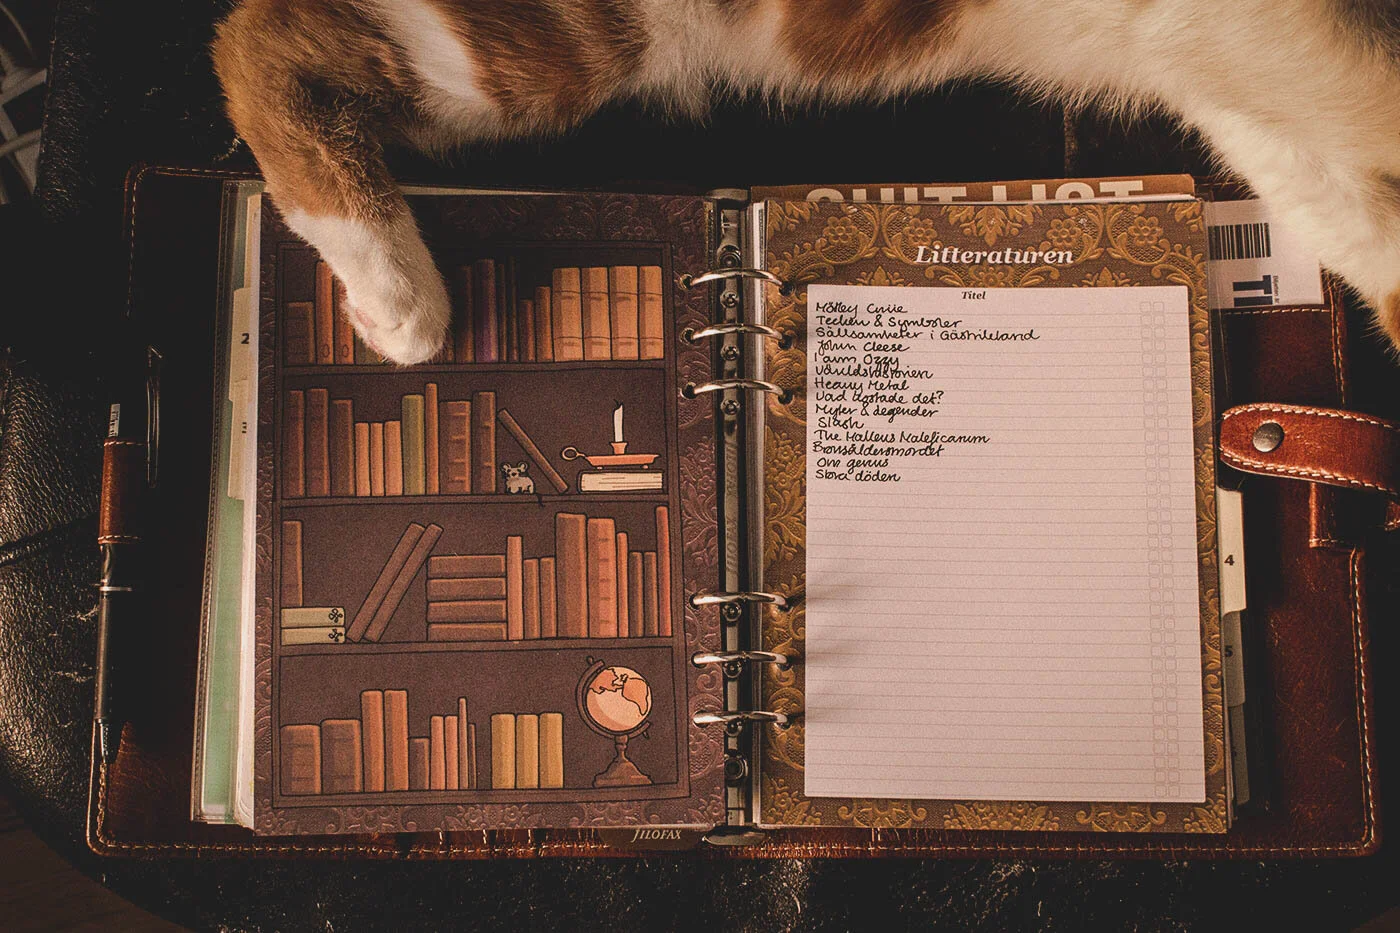 SHIT LIST
Litteraturen
Titel
Mötley Crüe
Tecken & Symboler
Sällsamheter i Gästrikland
John Cleese
I am Ozzy
Världshistorien
Heavy Metal
Vad kostade det?
Myter & legender
Slash
The Malleus Maleficarum
Bronsåldersmordet
Om genus
Stora döden
2
4
5
FILOFAX